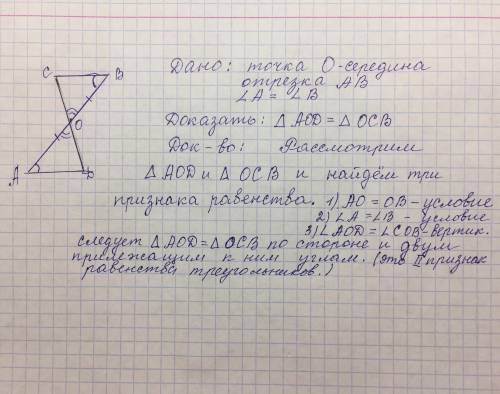 Дано: точка О-середина
отрезка АВ
∠A = ∠B
Доказать: △ AOD = △ OCB
Док-во: Рассмотрим
△ AOD и △ OCB и найдём три
признака равенства. 1) AO = OB - условие
2) ∠A = ∠B - условие
3) ∠AOD = ∠COB - вертик.
следует △AOD = △OCB по стороне и двум
прилежащим к ним углам. (это II признак
равенства треугольников.)
C
B
O
A
D